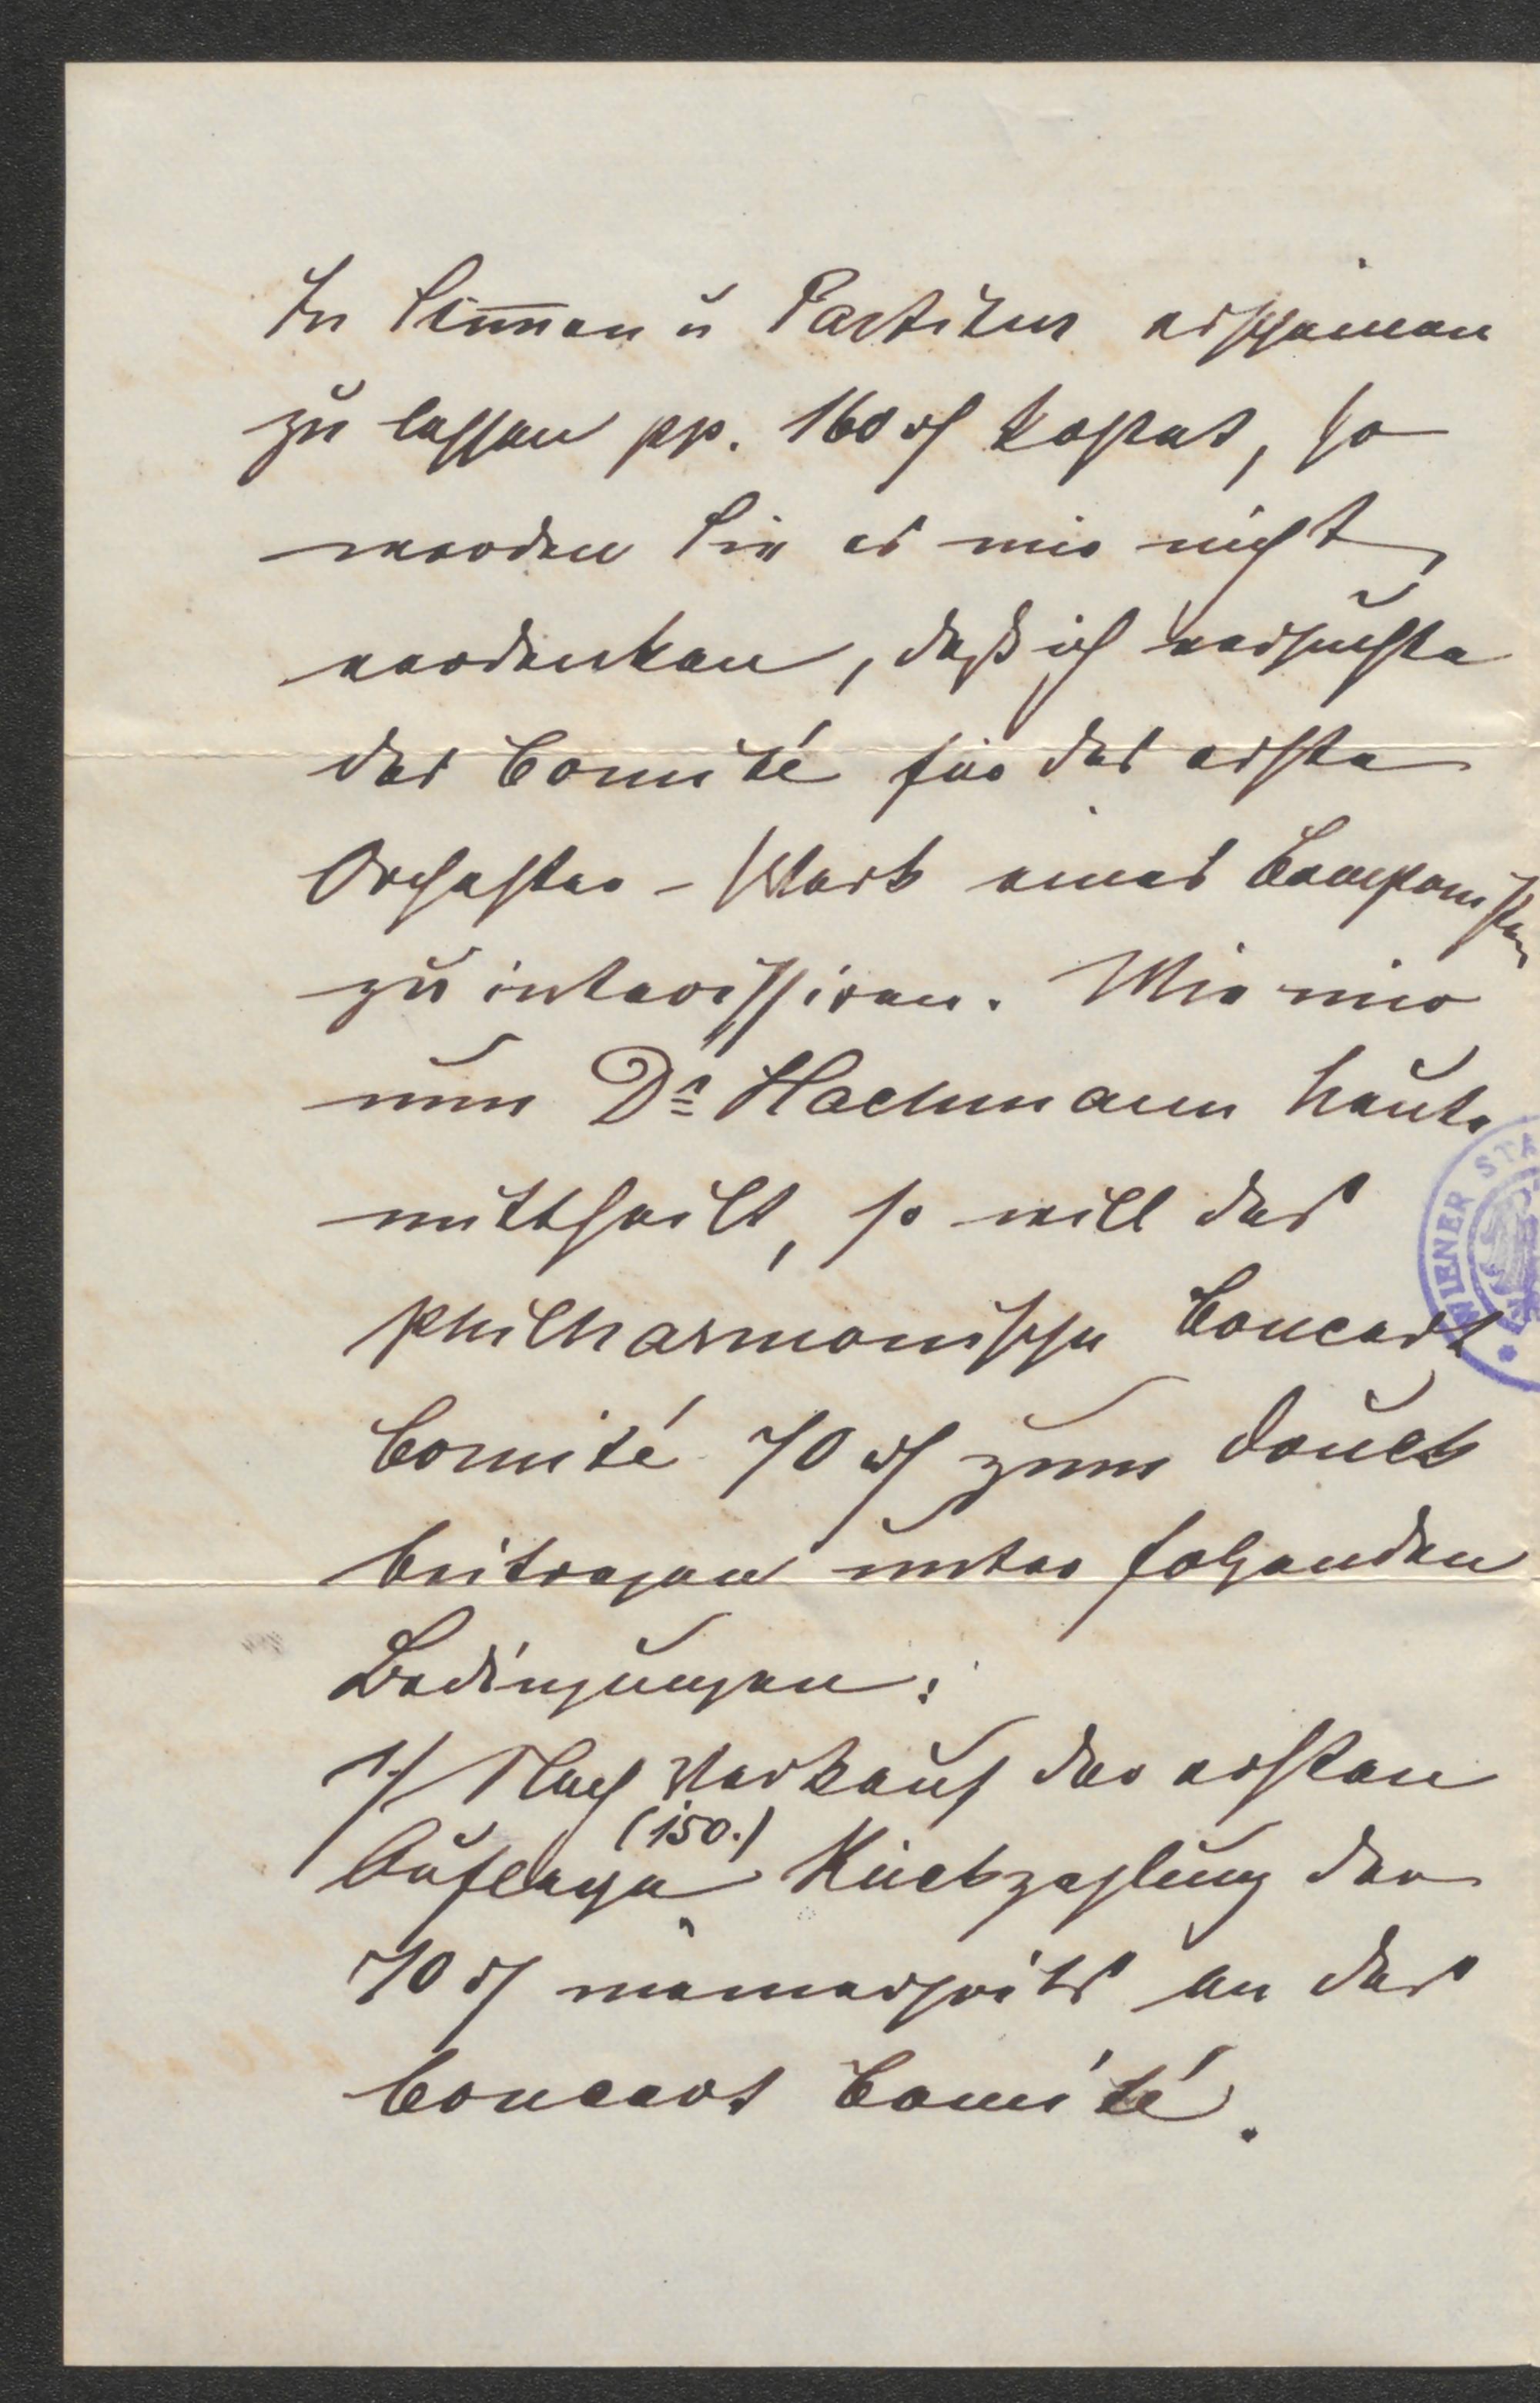 In Stim̅en u Partitur erscheinen
zu lassen pp. 160 rℳ kostet, so
werden Sie es mir nicht
verdenken, daß ich versuchte
das Comité für das erste
Orchester-Werk eines Componisten
zu interessiren. Wie mir
nun Dr Hachmann heute
mittheilt, so will das
philharmonische Concert
Comité 70 rℳ zum Druck
beitragen unter folgenden
Bedingungen:
1./ Nach Verkauf der ersten
(150.)
Auflage Rückzahlung der
70 rℳ meinerseits an das
Concert Comité.
WIENER STA